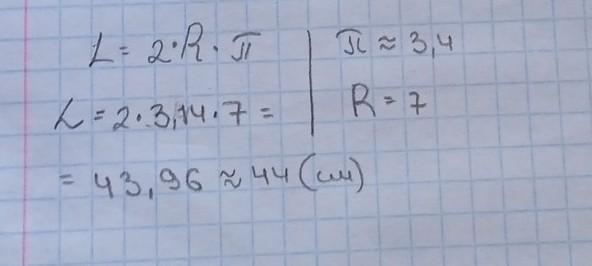 L = 2·R·π
L = 2·3,14·7 =
= 43,96 ≈ 44 (см)
π ≈ 3,4
R = 7